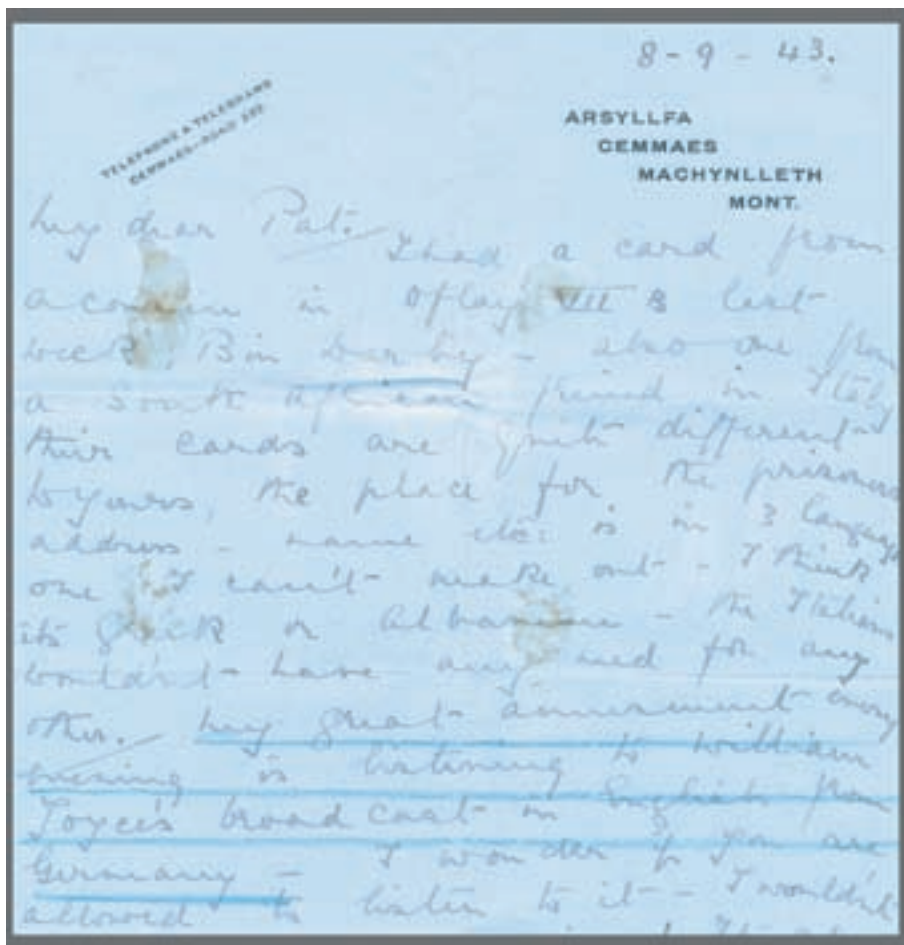 8 - 9 - 43.
TELEPHONE & TELEGRAMS
CEMMAES-ROAD
ARSYLLFA
CEMMAES
MACHYNLLETH
MONT.
My dear Pat. I had a card from
a cousin in Oflag VIII B last
week, - also one from
a South African friend in Italy
their cards are quite different
to yours, the place for the prisoners
address - name etc: is in 3 languages
one I can't make out - I think
its Greek or Albanian - the Italians
wouldn't have any need for any
other. My great amusement every
evening is listening to William
Joyce's broadcast in English from
Germany - I wonder if you are
allowed to listen to it - I wouldn't